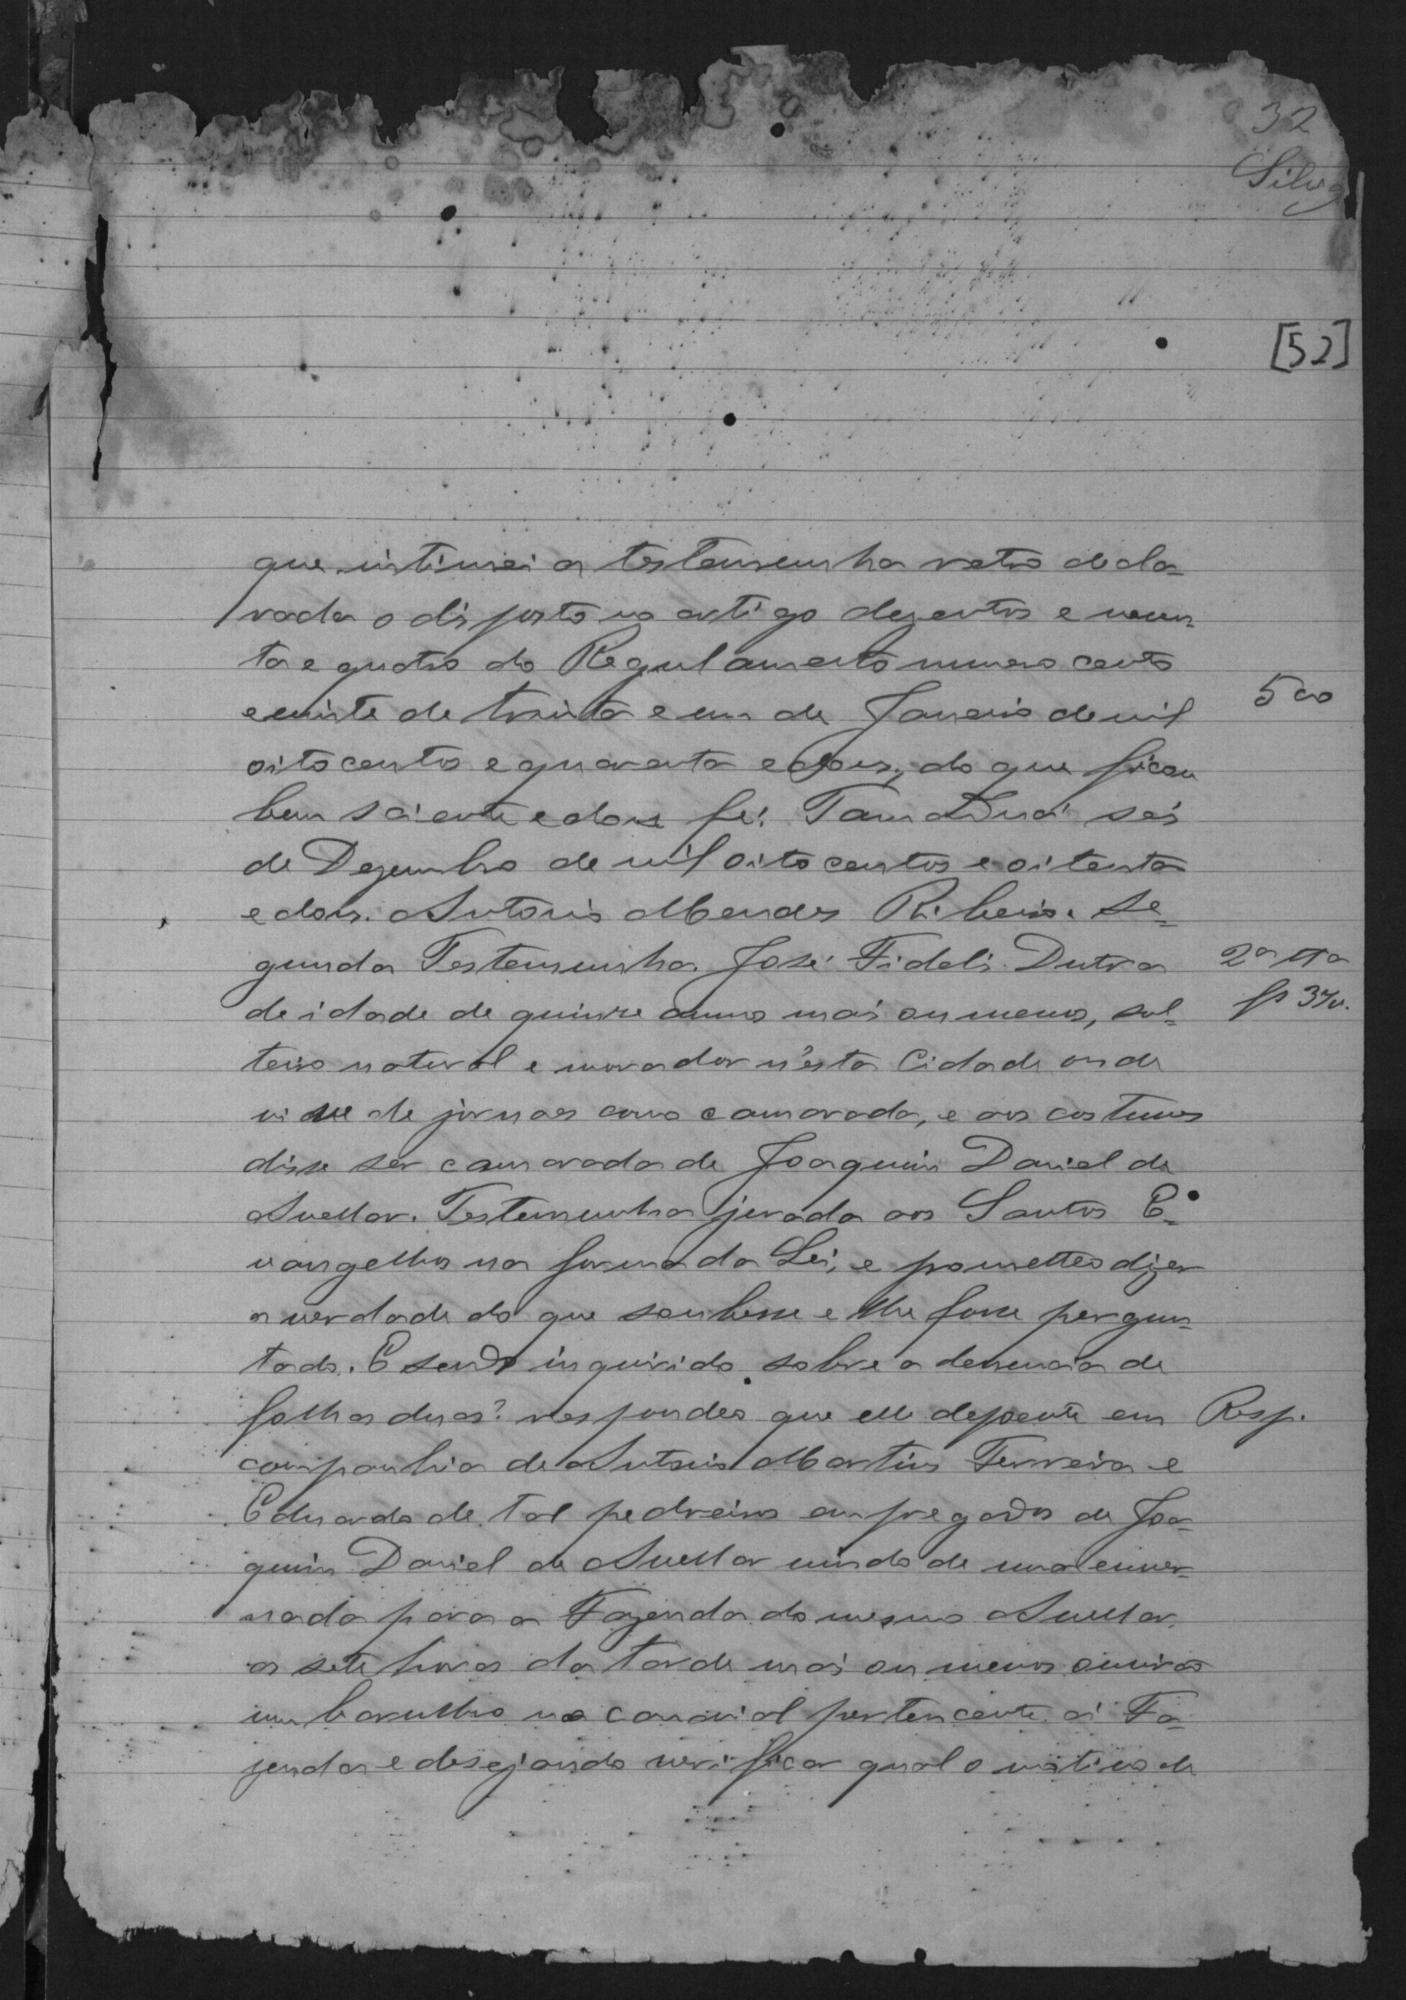 32
Silva
[52]
que intimei a testemunha retro decla-
rada o disposto no artigo dezentos e noven-
ta e quatro do Regulamento numero cento
e vinte de trinta e um de Janeiro de mil
500
oito centos e quarenta e dois, do que ficou
bem sciente e dou fé. Tamanduá seis
de Dezembro de mil oito centos e oitenta
e dous. Antonio Mendes Ribeiro. Se-
gunda Testemunha. José Fideli Dutra
2ª tta
de idade de quinze annos mais ou menos, sol-
fs 37v.
teiro natural e morador n'esta Cidade onde
vive de jornaes como camarada, e aos costumes
disse ser camarada de Joaquim Daniel de
Avellar. Testemunha jurada aos Santos E-
vangelhos na forma da Lei, e prometteo dizer
a verdade do que soubesse e lhe fosse pergun-
tado. E sendo inquirido sobre a denuncia de
folhas duas? respondeo que elle depoente em
Resp.
companhia de Antonio Martins Ferreira e
Eduardo de tal pedreiros empregados de Joa-
quim Daniel de Avellar vindo de uma enver-
nada para a Fazenda do mesmo Avellar,
as sete horas da tarde mais ou menos ouvirão
um barulho no canavial pertencente á Fa-
zenda e desejando verificar qual o motivo de